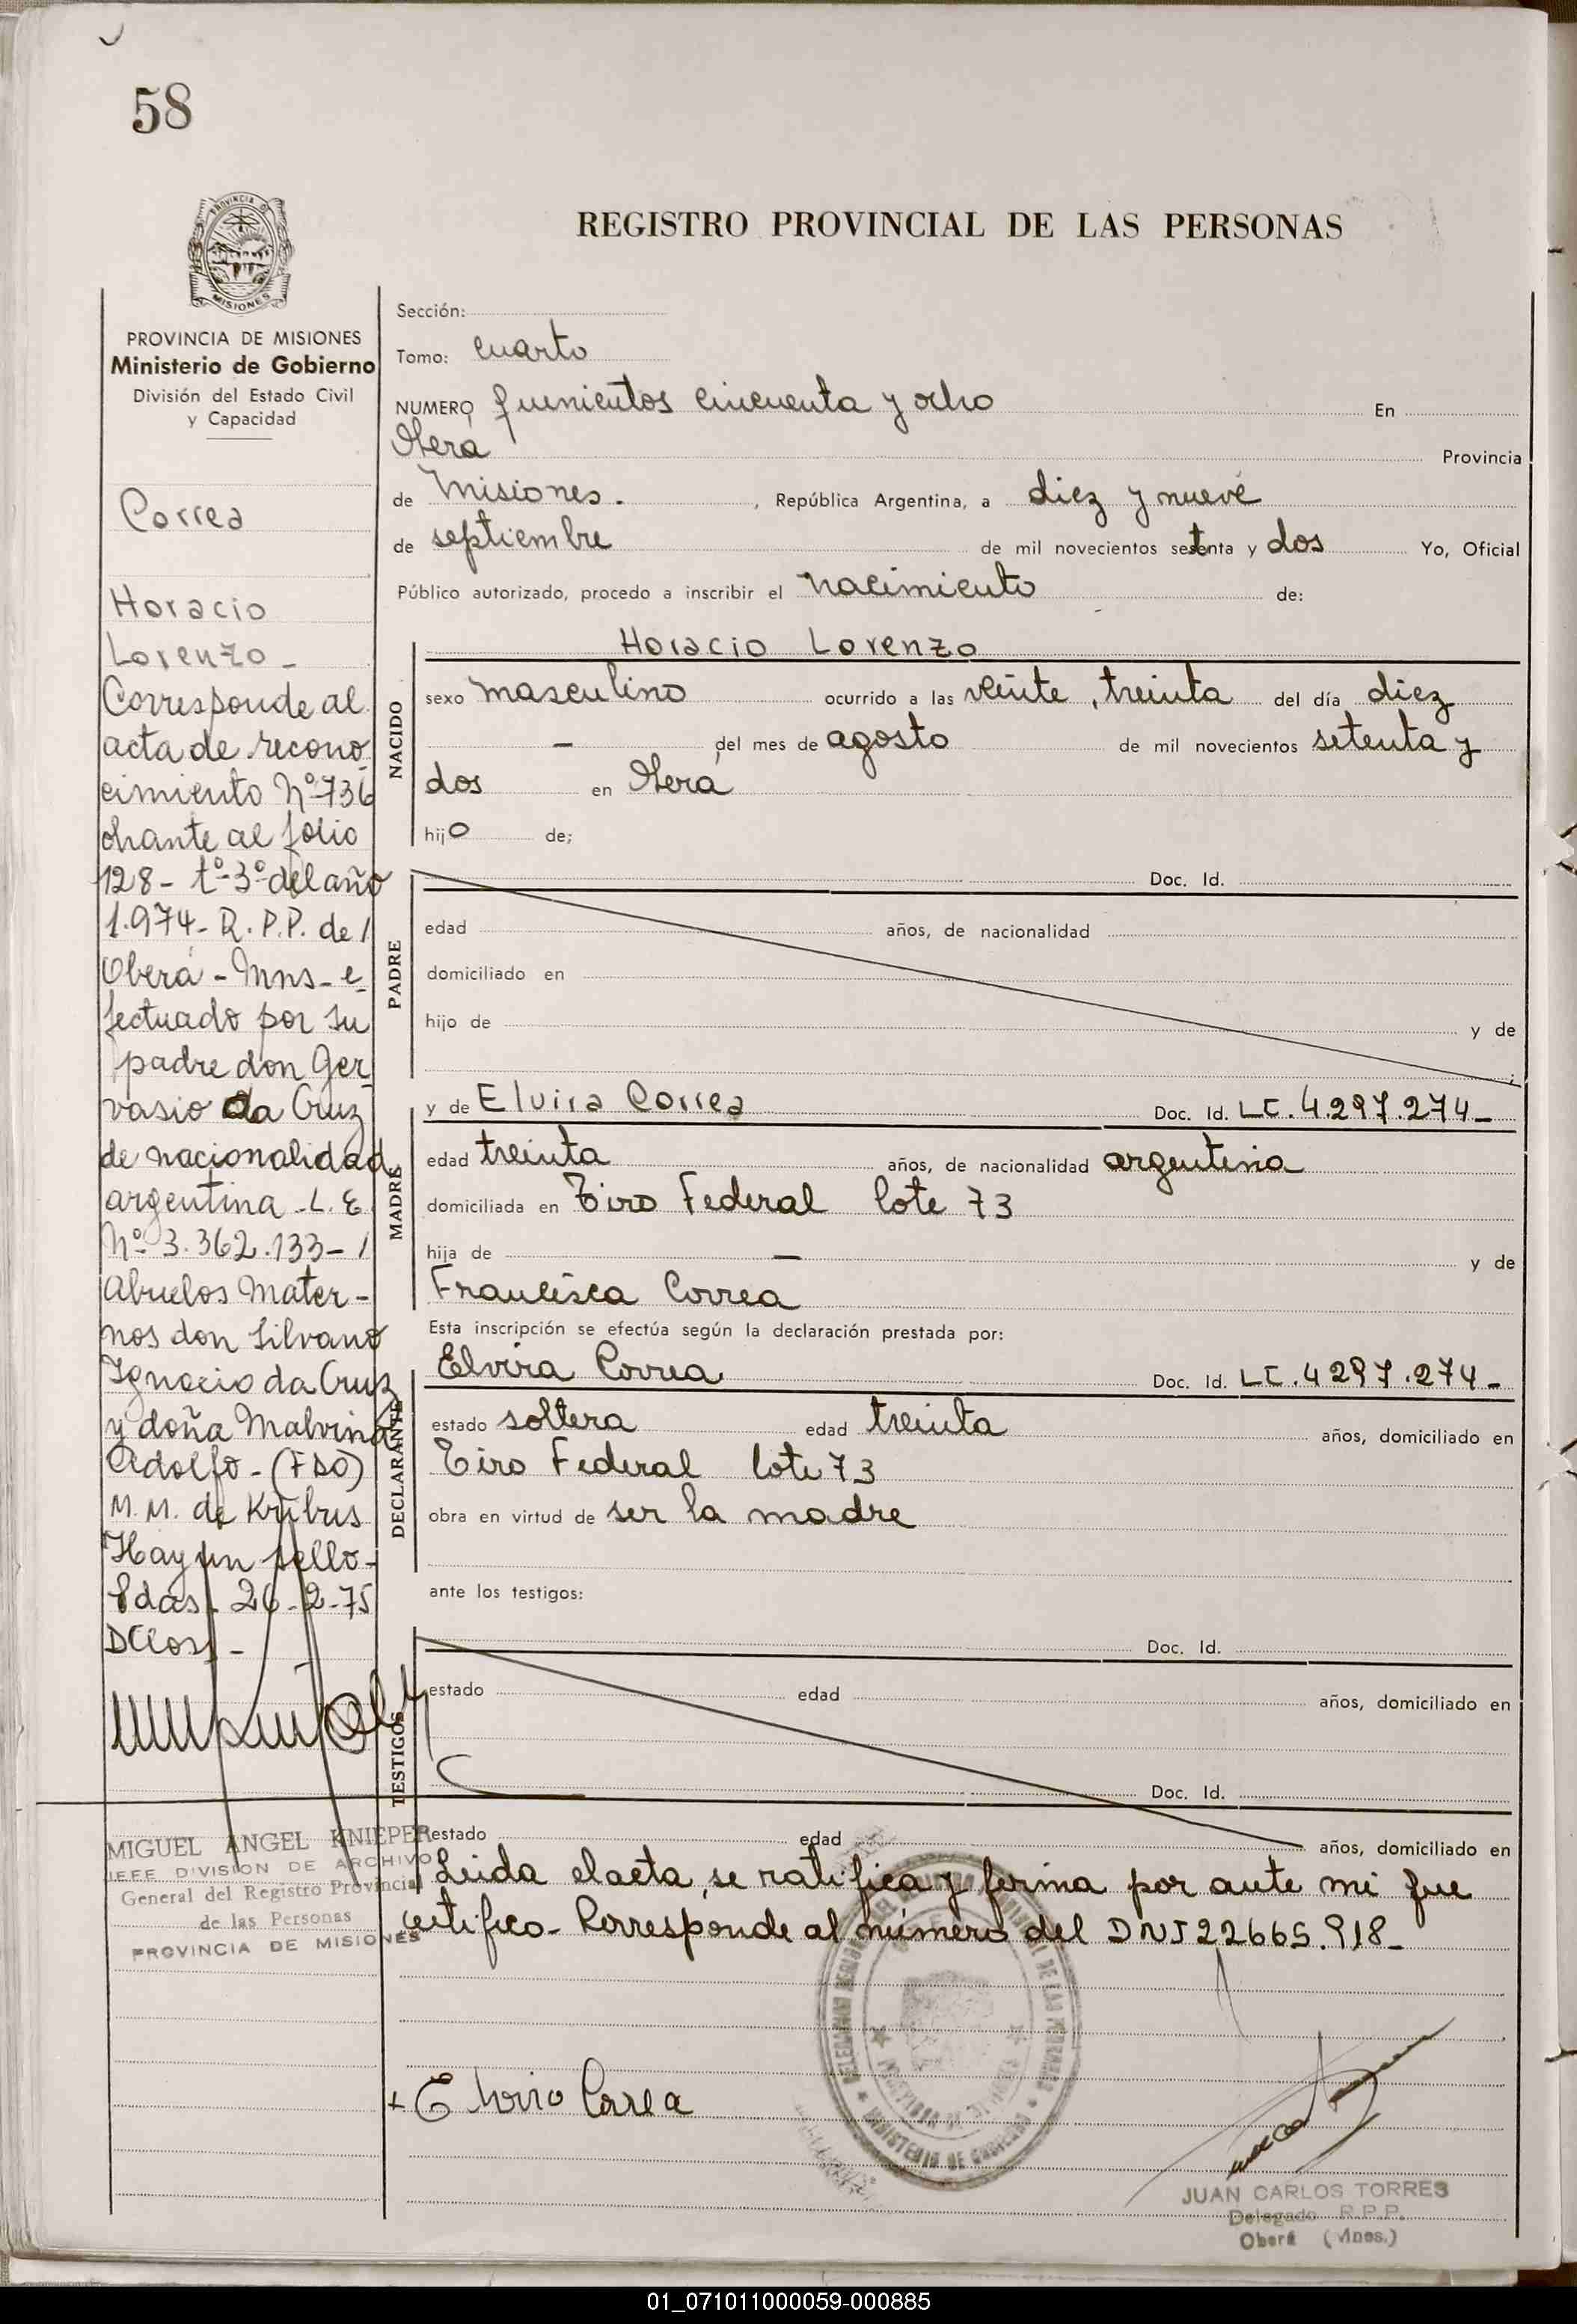 58
REGISTRO PROVINCIAL DE LAS PERSONAS
MISIONES
PROVINCIA DE MISIONES
Ministerio de Gobierno
División del Estado Civil
y Capacidad
Correa
Horacio
Lorenzo -
Corresponde al
acta de recono
cimiento Nº 736
obrante al folio
128 - tº 3º del año
1.974 - R. P. P. de /
Oberá - Mns - e
fectuado por su
padre don Ger
vasio da Cruz
de nacionalidad
argentina - L. E
Nº 3.362.133 - /
Abuelos Mater -
nos don Silvano
Ignacio da Cruz
y doña Malvina
Adolfo - (FDO)
M. M. de Kribus
Hay un sello -
Pdas - 26 - 2 - 75
MIGUEL ANGEL KNIEPER
JEFE DIVISION DE ARCHIVO
General del Registro Provincial
de las Personas
PROVINCIA DE MISIONES
Sección:
Tomo: cuarto
NUMERO quinientos cincuenta y ocho En
Oberá Provincia
de Misiones. , República Argentina, a diez y nueve
de septiembre de mil novecientos setenta y dos Yo, Oficial
Público autorizado, procedo a inscribir el nacimiento de:
NACIDO
Horacio Lorenzo
sexo masculino ocurrido a las veinte, treinta del día diez
— del mes de agosto de mil novecientos setenta y
dos en Oberá
hijo de;
PADRE
Doc. Id.
edad años, de nacionalidad
domiciliado en
hijo de y de
MADRE
y de Elvira Correa Doc. Id. LC. 4.297.274 -
edad treinta años, de nacionalidad argentina
domiciliada en Tiro Federal lote 73
hija de — y de
Francisca Correa
Esta inscripción se efectúa según la declaración prestada por:
DECLARANTE
Elvira Correa Doc. Id. LC. 4297.274 -
estado soltera edad treinta años, domiciliado en
Tiro Federal lote 73
obra en virtud de ser la madre
ante los testigos:
TESTIGOS
Doc. Id.
estado edad años, domiciliado en
Doc. Id.
estado edad años, domiciliado en
Leida el acta, se ratifica y firma por ante mi que
certifico - Corresponde al número del DNI 22665.918 -
+ Elvira Correa
MINISTERIO DE GOBIERNO
JUAN CARLOS TORRES
Delegado R.P.P.
Oberá (Mnes.)
01_071011000059-000885